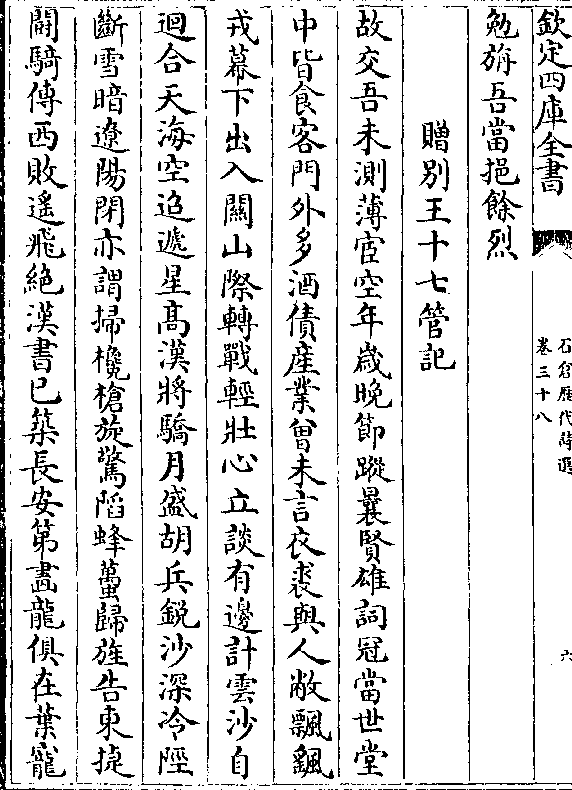 欽定四庫全書
石倉歷代詩選
卷三十八
六
勉旃吾當挹餘烈
贈別王十七管記
故交吾未測薄宦空年歲晚節蹤曩賢雄詞冠當世堂
中皆食客門外多酒債産業曾未言衣裘與人敝飄飖
戎幕下出入關山際轉戰輕壯心立談有邊計雲沙自
迴合天海空迢遞星高漢將驕月盛胡兵鋭沙深冷陘
斷雪暗遼陽閉亦謂掃欃槍旋驚陷蜂蠆歸旌告東捷
鬬騎傳西敗遥飛絶漢書已築長安第畫龍俱在葉寵